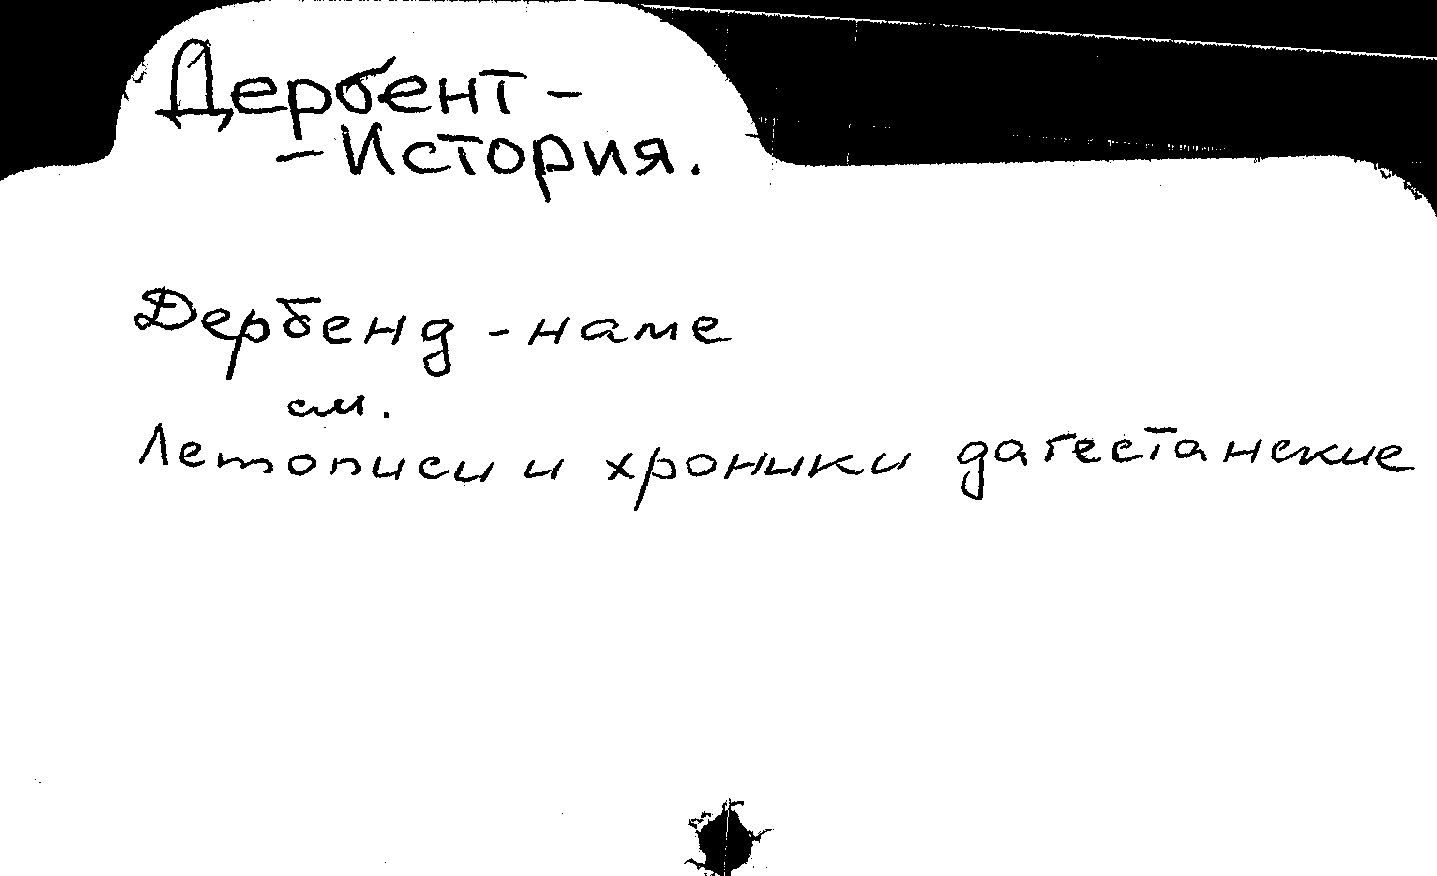 Дербент -
- История.
Дербенд - наме
см.
Летописи и хроники дагестанские